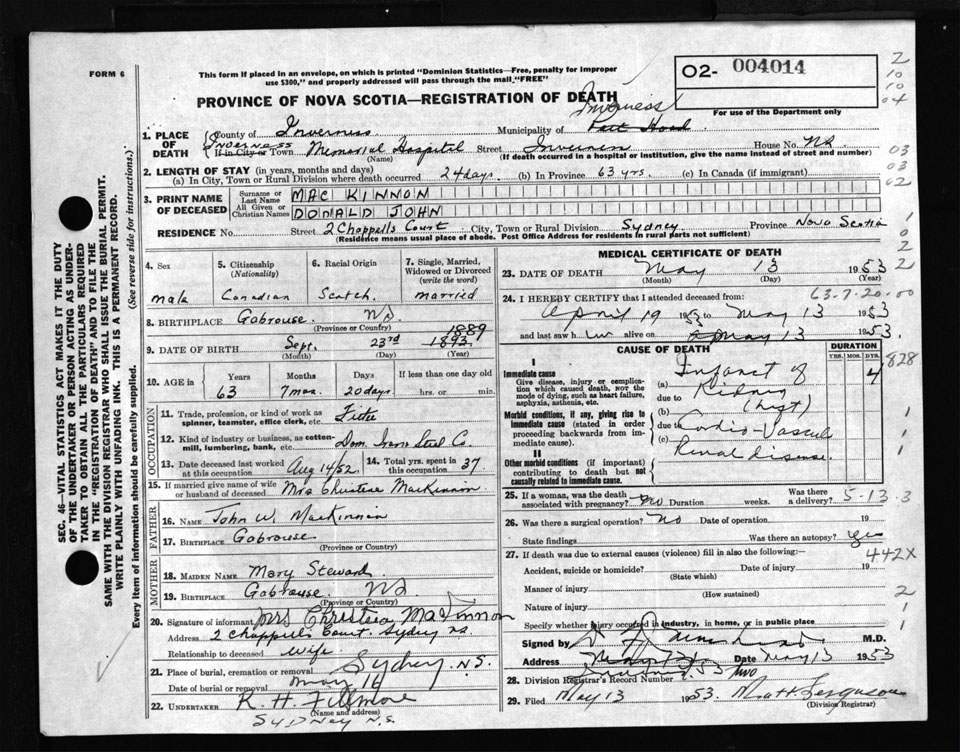 FORM 6
This form if placed in an envelope, on which is printed "Dominion Statistics—Free, penalty for improper use $300," and properly addressed will pass through the mail "FREE"
O2- 004014
For use of the Department only
2
10
10
04
03
03
02
1
0
2
2
PROVINCE OF NOVA SCOTIA—REGISTRATION OF DEATH
Inverness
1. PLACE OF DEATH
County of Inverness Municipality of Port Hood
Inverness
If in City or Town Memorial Hospital (Name) Street Inverness House No. NR
(If death occurred in a hospital or institution, give the name instead of street and number)
2. LENGTH OF STAY (in years, months and days)
(a) In City, Town or Rural Division where death occurred 24 days. (b) In Province 63 yrs. (c) In Canada (if immigrant)
3. PRINT NAME OF DECEASED
Surname or Last Name MAC KINNON
All Given or Christian Names DONALD JOHN
RESIDENCE House No. Street 2 Chappells Court City, Town or Rural Division Sydney Province Nova Scotia
(Residence means usual place of abode. Post Office Address for residents in rural parts not sufficient)
4. Sex male
5. Citizenship (Nationality) Canadian
6. Racial Origin Scotch.
7. Single, Married, Widowed or Divorced (write the word) married
8. BIRTHPLACE Gabrouse. NS (Province or Country)
9. DATE OF BIRTH Sept. (Month) 23rd (Day) 1893. 1889 (Year)
10. AGE in Years 63 Months 7 mos. Days 20 days. If less than one day old hrs. or min.
OCCUPATION
11. Trade, profession, or kind of work as spinner, teamster, office clerk, etc.
12. Kind of industry or business, as cotton-mill, lumbering, bank, etc. Dom. Iron Steel Co.
13. Date deceased last worked at this occupation Aug 14/52.
14. Total yrs. spent in this occupation 37.
15. If married give name of wife or husband of deceased Mrs Christene MacKinnon
FATHER
16. NAME John W. MacKinnon
17. BIRTHPLACE Gabrouse (Province or Country)
MOTHER
18. MAIDEN NAME Mary Steward
19. BIRTHPLACE Gabrouse. NS (Province or Country)
20. Signature of informant Mrs MacKinnon
Address 2 Chappells Court. Sydney NS
Relationship to deceased wife.
21. Place of burial, cremation or removal Sydney N.S.
Date of burial or removal May 16
22. UNDERTAKER R. H. Fillmore
(Name and address)
SYDNEY N.S.
MEDICAL CERTIFICATE OF DEATH
23. DATE OF DEATH May (Month) 13 (Day) 1953 (Year)
63-7-20-00
24. I HEREBY CERTIFY that I attended deceased from:
April 19 1953 to May 13 1953
and last saw h alive on May 13 1953.
CAUSE OF DEATH
DURATION
YRS. MOS. DYS.
828
I
Immediate cause
Give disease, injury or complication which caused death, NOT the mode of dying, such as heart failure, asphyxia, asthenia, etc.
(a) Infarct of 4
due to Kidney
Morbid conditions, if any, giving rise to immediate cause (stated in order proceeding backwards from immediate cause).
(b)
due to Cardio-Vascul
(c) Renal disease.
II
Other morbid conditions (if important) contributing to death but not causally related to immediate cause.
1
1
25. If a woman, was the death associated with pregnancy? no Duration weeks. Was there a delivery? 5-13-3
26. Was there a surgical operation? No Date of operation 19
State findings Was there an autopsy? yes
27. If death was due to external causes (violence) fill in also the following:— 442X
Accident, suicide or homicide? (State which) Date of injury 19
Manner of injury (How sustained) 2
Nature of injury 1
Specify whether injury occurred in industry, in home, or in public place 1
Signed by M.D.
Address Date May 13 1953
28. Division Registrar's Record Number
29. Filed May 13 1953 Matt Ferguson
(Division Registrar)
SEC. 46—VITAL STATISTICS ACT MAKES IT THE DUTY OF THE UNDERTAKER OR PERSON ACTING AS UNDERTAKER TO OBTAIN ALL THE PARTICULARS REQUIRED IN THE "REGISTRATION OF DEATH" AND TO FILE THE SAME WITH THE DIVISION REGISTRAR WHO SHALL ISSUE THE BURIAL PERMIT.
WRITE PLAINLY WITH UNFADING INK. THIS IS A PERMANENT RECORD.
Every item of information should be carefully supplied. (See reverse side for instructions.)